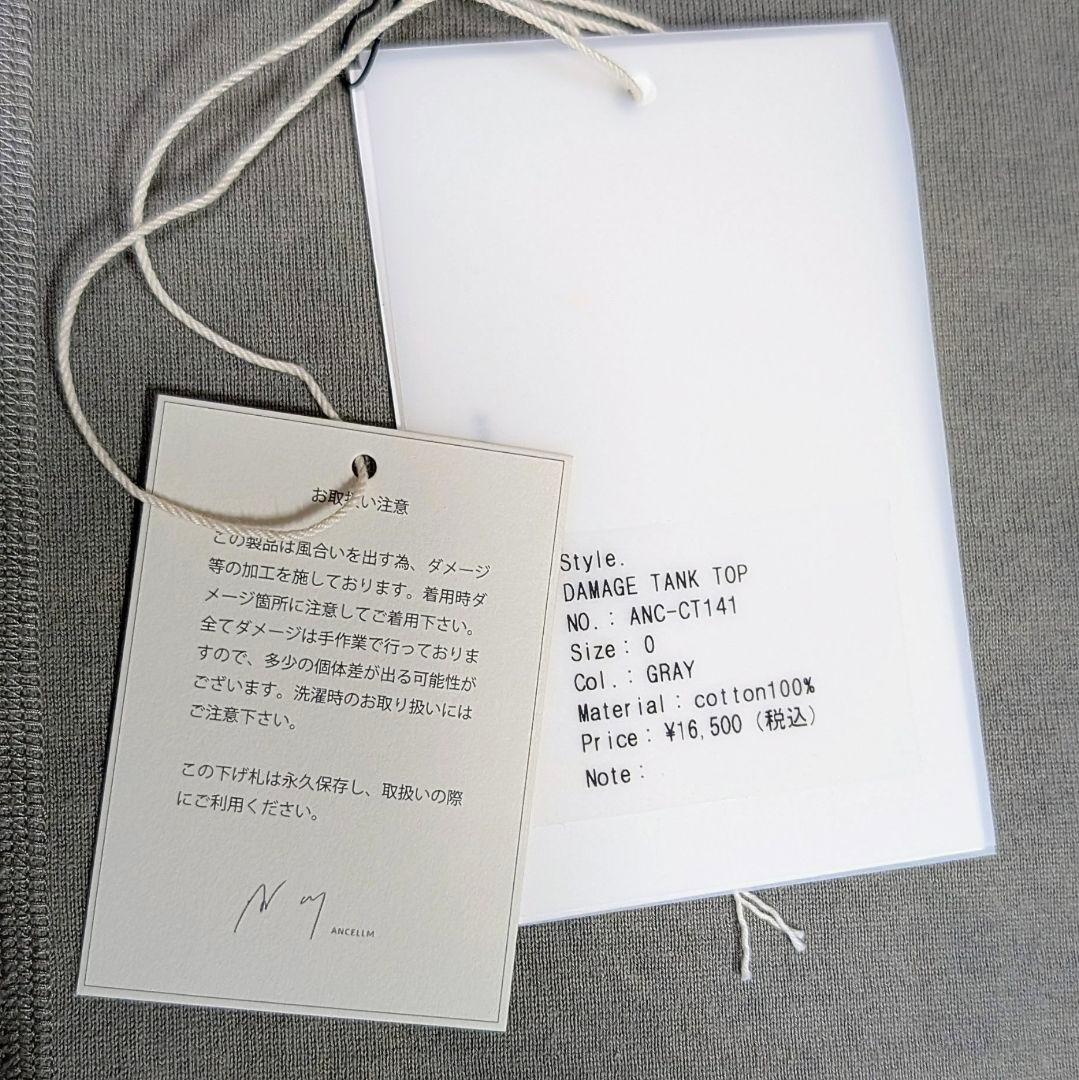 お取扱い注意
この製品は風合いを出す為、ダメージ
等の加工を施しております。着用時ダ
メージ箇所に注意してご着用下さい。
全てダメージは手作業で行っておりま
すので、多少の個体差が出る可能性が
ございます。洗濯時のお取り扱いには
ご注意下さい。
この下げ札は永久保存し、取扱いの際
にご利用ください。
ANCELLM
Style.
DAMAGE TANK TOP
NO.: ANC-CT141
Size: 0
Col.: GRAY
Material: cotton100%
Price: ¥16,500 (税込)
Note: